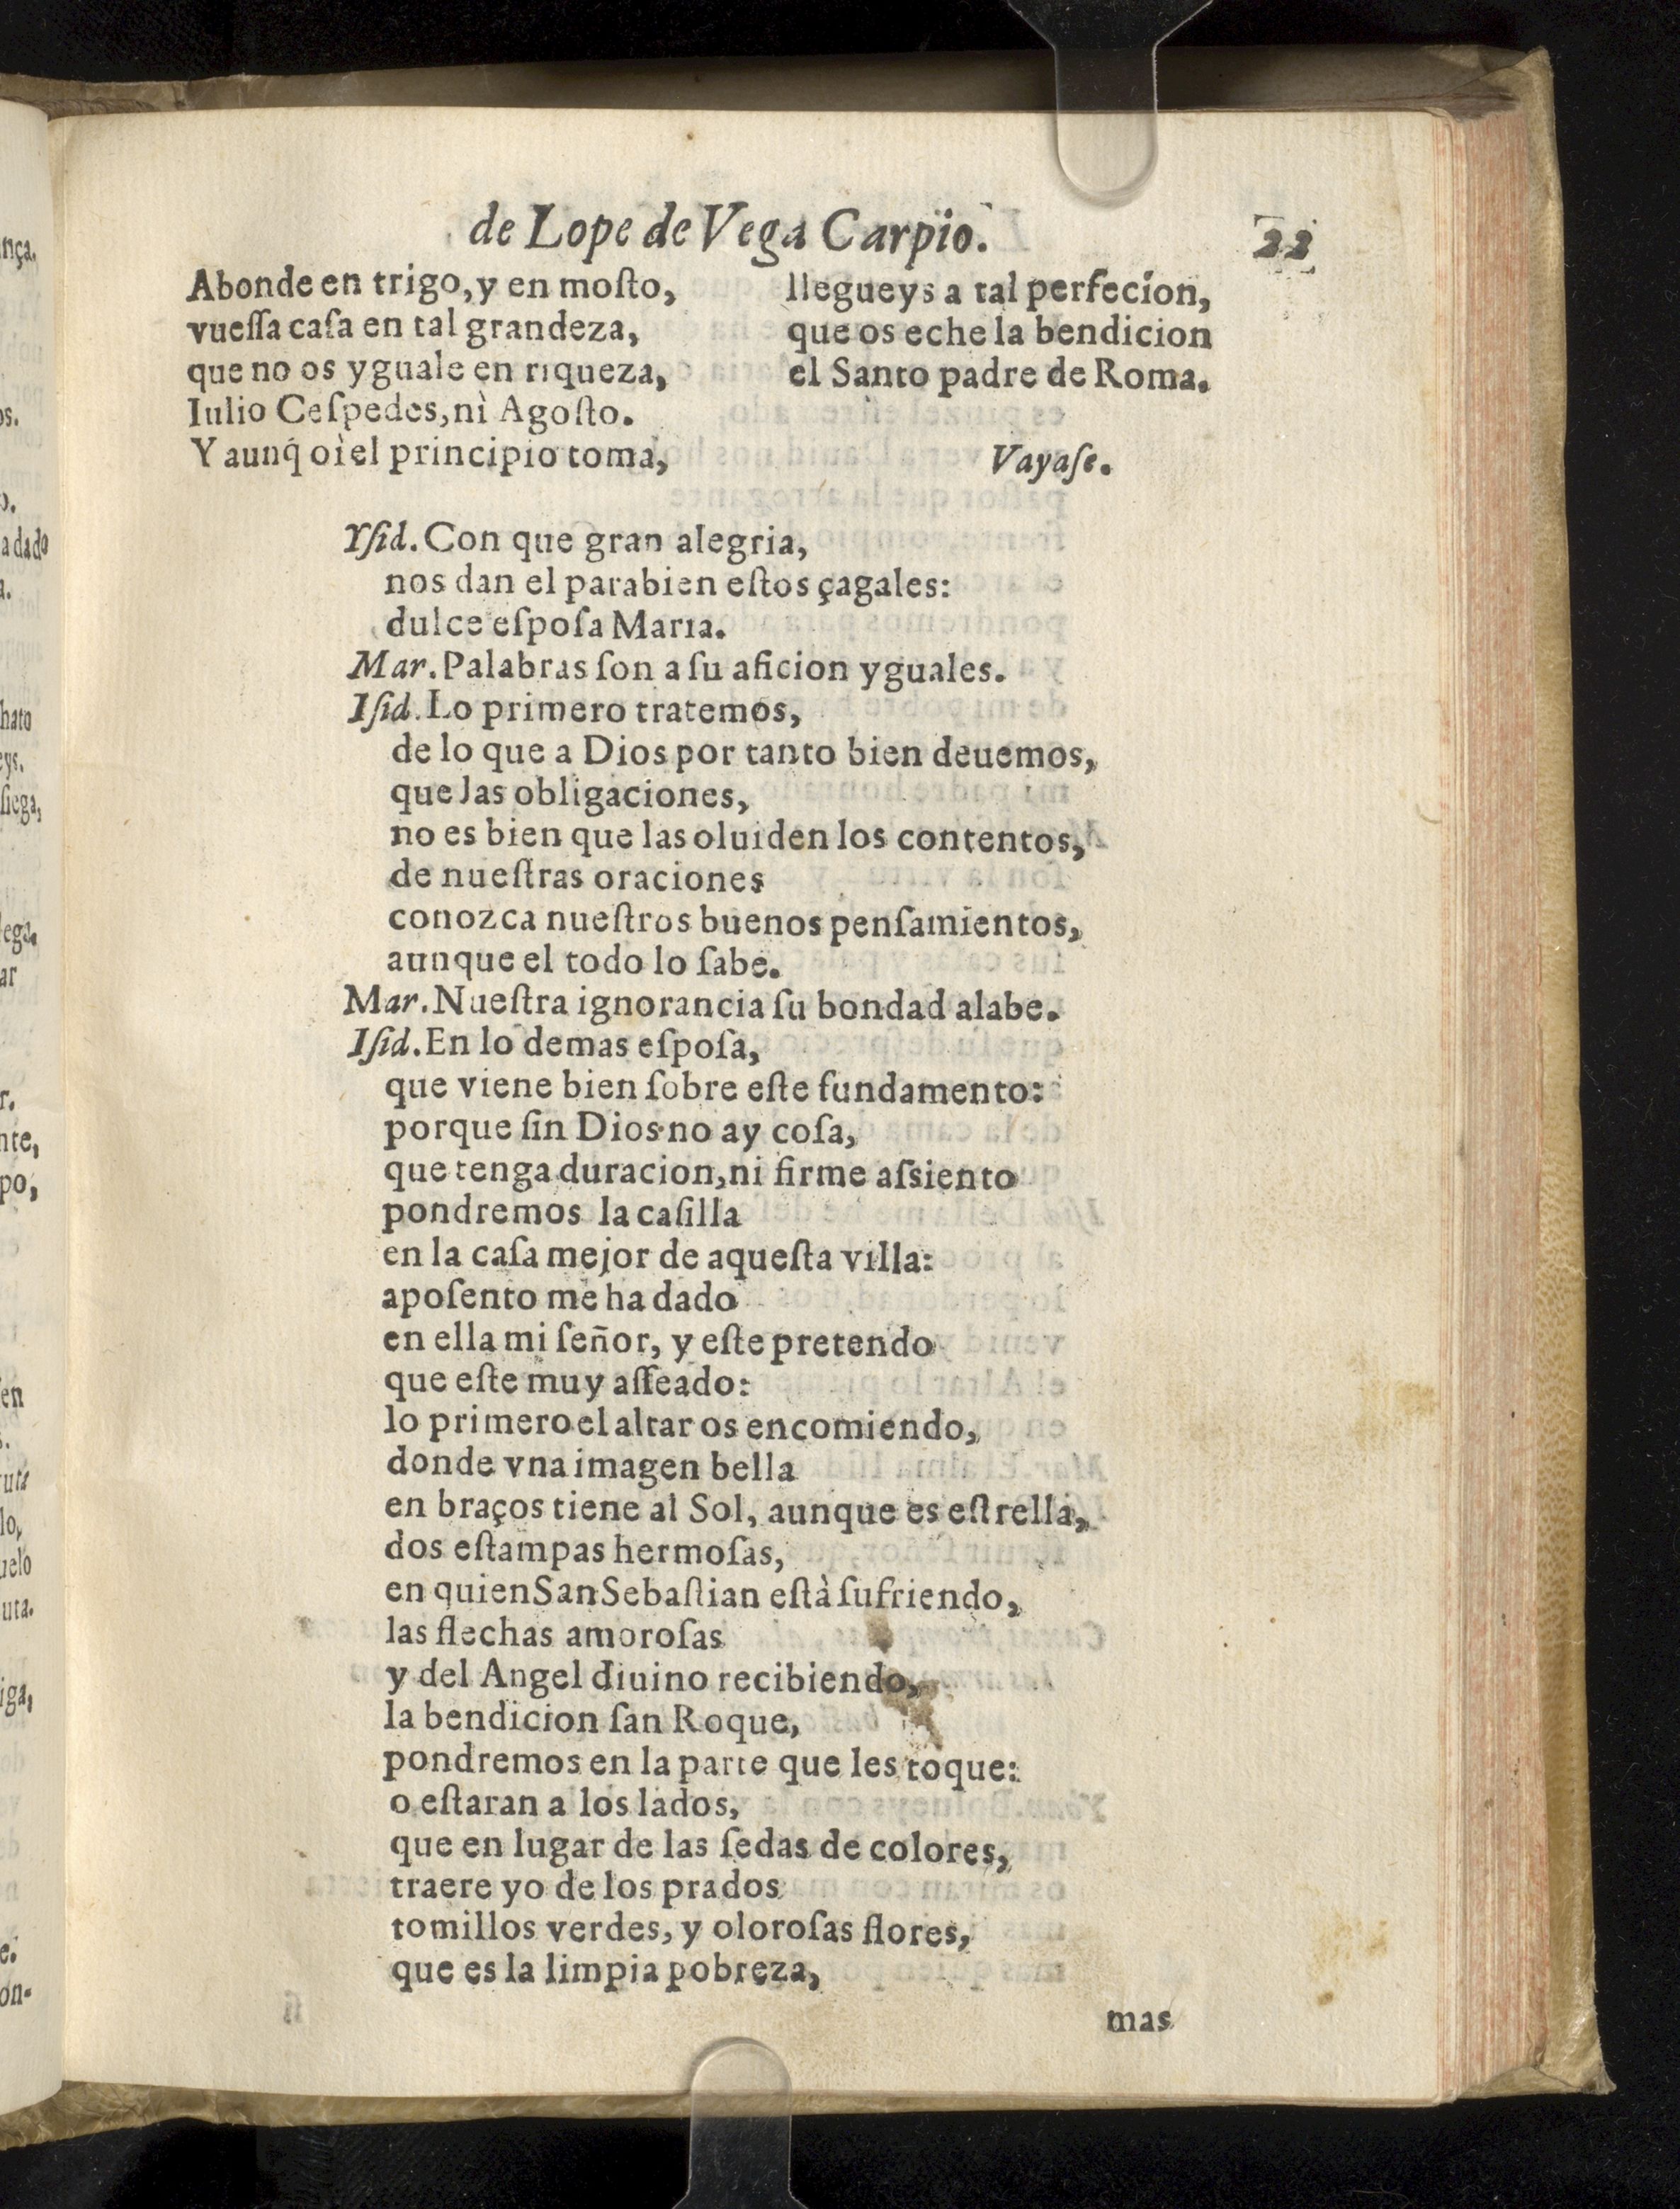 de Lope de Vega Carpio. 22
Abonde en trigo, y en moſto,
vueſſa caſa en tal grandeza,
que no os yguale en riqueza,
Iulio Ceſpedes, nì Agoſto.
Y aunq́ oì el principio toma,
llegueys a tal perfecion,
que os eche la bendicion
el Santo padre de Roma.
Vayaſe.
Yſid. Con que gran alegria,
nos dan el parabien eſtos çagales:
dulce eſpoſa Maria.
Mar. Palabras ſon a ſu aficion yguales.
Iſid. Lo primero tratemos,
de lo que a Dios por tanto bien deuemos,
que las obligaciones,
no es bien que las oluiden los contentos,
de nueſtras oraciones
conozca nueſtros buenos penſamientos,
aunque el todo lo ſabe.
Mar. Nueſtra ignorancia ſu bondad alabe.
Iſid. En lo demas eſpoſa,
que viene bien ſobre eſte fundamento:
porque ſin Dios no ay coſa,
que tenga duracion, ni firme aſsiento
pondremos la caſilla
en la caſa mejor de aqueſta villa:
apoſento me ha dado
en ella mi ſeñor, y eſte pretendo
que eſte muy aſſeado:
lo primero el altar os encomiendo,
donde vna imagen bella
en braços tiene al Sol, aunque es eſtrella,
dos eſtampas hermoſas,
en quien San Sebaſtian eſtà ſufriendo,
las flechas amoroſas
y del Angel diuino recibiendo,
la bendicion ſan Roque,
pondremos en la parte que les toque:
o eſtaran a los lados,
que en lugar de las ſedas de colores,
traere yo de los prados
tomillos verdes, y oloroſas flores,
que es la limpia pobreza,
mas